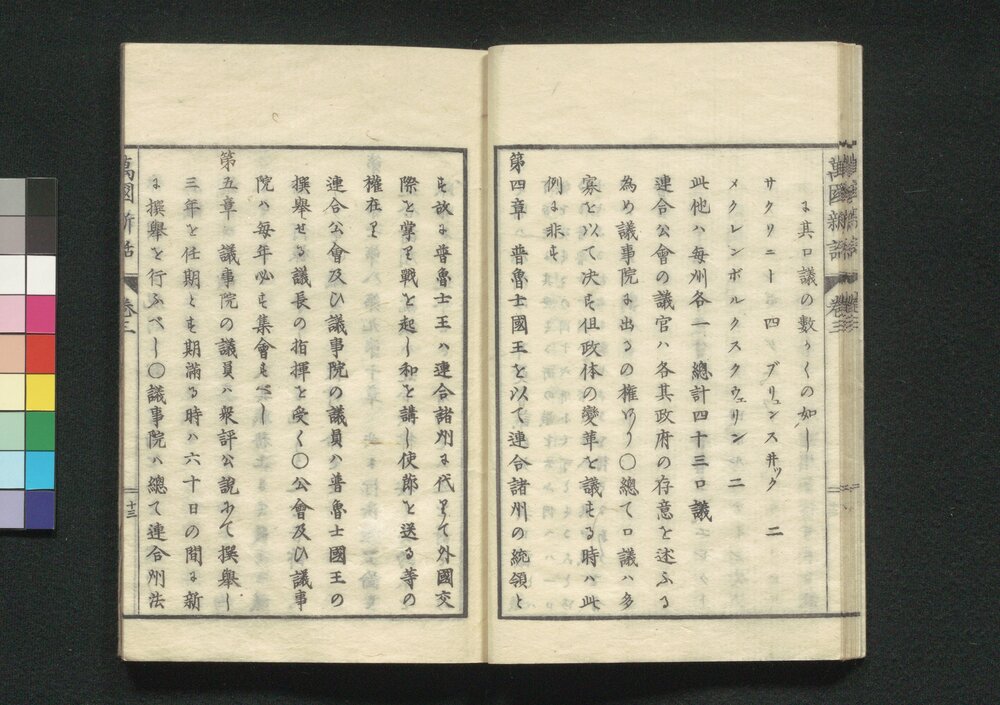 萬國新話 卷三
に其口議の數かくの如し
サクソニー 四 ブリュンスヰック 二
メクレンボルクスクウェリン 二
此他ハ每州各一 總計四十三口議
連合公會の議官ハ各其政府の存意を述ふる
為め議事院に出るの權あり〇總て口議ハ多
寡を以て决す但政体の變革を議する時ハ此
例に非す
第四章 普魯士國王を以て連合諸州の統領と
す故に普魯士王ハ連合諸州に代りて外國交
際を掌り戰を起し和を講し使節を送る等の
權在り
連合公會及ひ議事院の議員ハ普魯士國王の
撰舉せる議長の指揮を受く〇公會及ひ議事
院ハ每年必す集會すべし
第五章 議事院の議員ハ衆評公說にて撰舉し
三年を任期とす期滿る時ハ六十日の間に新
に撰舉を行ふべし〇議事院ハ總て連合州法
萬國新話 卷三 十三